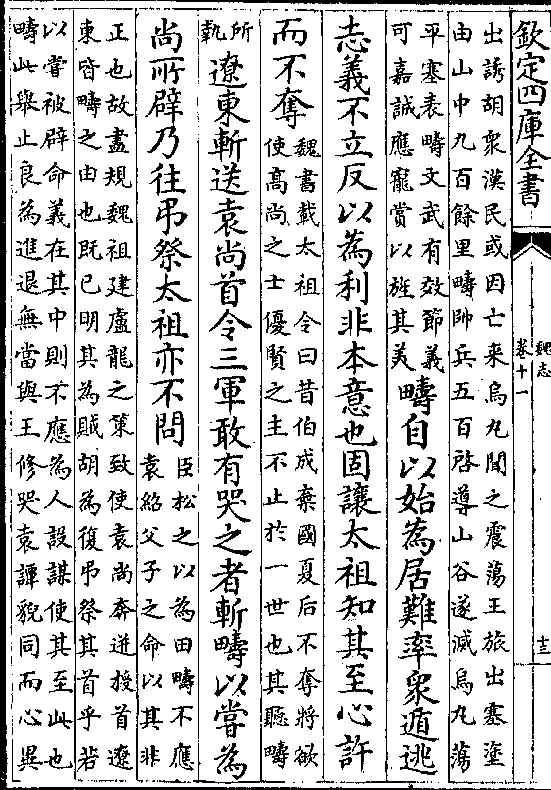 欽定四庫全書
魏志
卷十一
十三
出誘胡衆漢民或因亡来烏丸聞之震蕩王旅出塞塗
由山中九百餘里疇帥兵五百啓導山谷遂滅烏丸蕩
平塞表疇文武有效節義
可嘉誠應寵賞以旌其美
疇自以始為居難率衆遁逃
志義不立反以為利非本意也固讓太祖知其至心許
而不奪
魏書載太祖令曰昔伯成棄國夏后不奪將欲
使高尚之士優賢之主不止於一世也其聽疇
所
執
遼東斬送袁尚首令三軍敢有哭之者斬疇以嘗為
尚所辟乃往弔祭太祖亦不問
臣松之以為田疇不應
袁紹父子之命以其非
正也故盡規魏祖建盧龍之策致使袁尚奔迸授首遼
東皆疇之由也既已明其為賊胡為復弔祭其首乎若
以嘗被辟命義在其中則不應為人設謀使其至此也
疇此舉止良為進退無當與王修哭袁譚貌同而心異